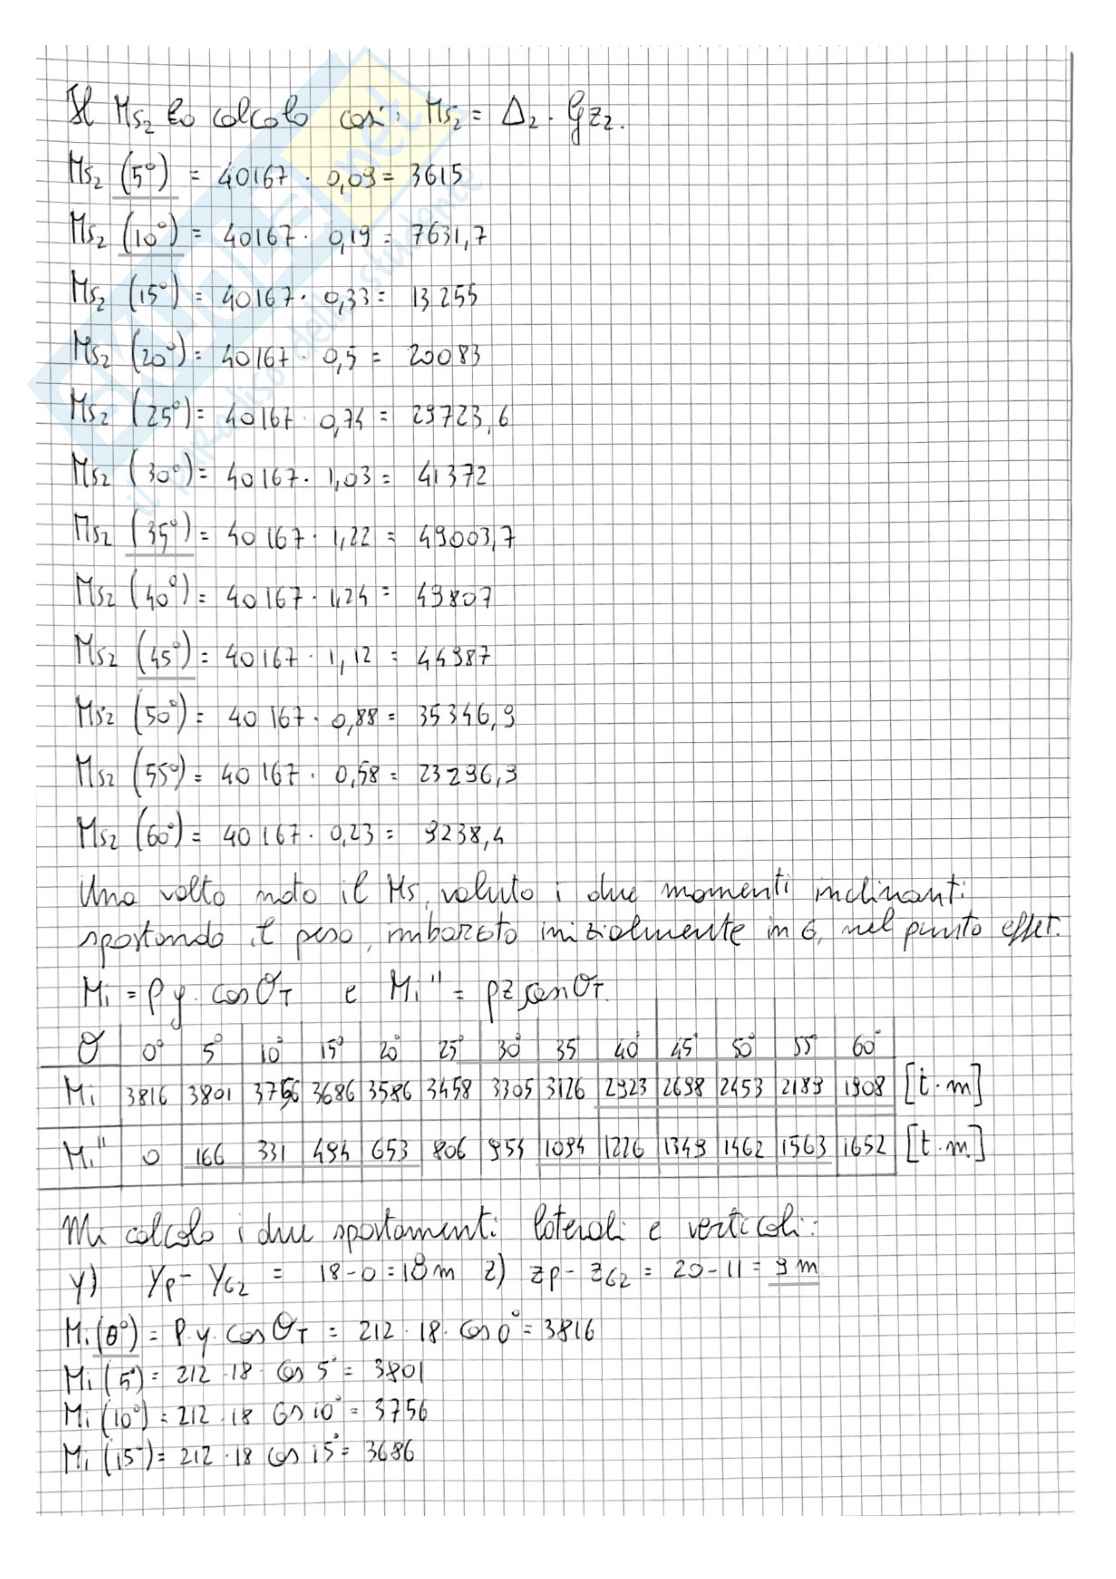 Il Ms₂ lo calcolo così: Ms₂ = Δ₂ · Gz₂.
Ms₂ (5°) = 40167 · 0,09 = 3615
Ms₂ (10°) = 40167 · 0,19 = 7631,7
Ms₂ (15°) = 40167 · 0,33 = 13255
Ms₂ (20°) = 40167 · 0,5 = 20083
Ms₂ (25°) = 40167 · 0,74 = 29723,6
Ms₂ (30°) = 40167 · 1,03 = 41372
Ms₂ (35°) = 40167 · 1,22 = 49003,7
Ms₂ (40°) = 40167 · 1,24 = 49807
Ms₂ (45°) = 40167 · 1,12 = 44987
Ms₂ (50°) = 40167 · 0,88 = 35346,9
Ms₂ (55°) = 40167 · 0,58 = 23296,3
Ms₂ (60°) = 40167 · 0,23 = 9238,4
Una volta noto il Ms, valuto i due momenti inclinanti
spostando il peso, imbarcato inizialmente in G, nel punto effet.
Mi = p y · cos θT e Mi" = pz sen θT
θ 0° 5° 10° 15° 20° 25° 30° 35° 40° 45° 50° 55° 60°
Mi 3816 3801 3756 3686 3586 3458 3305 3126 2923 2698 2453 2189 1908 [t·m]
Mi" 0 166 331 494 653 806 954 1094 1226 1349 1462 1563 1652 [t·m]
Mi calcolo i due spostamenti laterali e verticali:
y) yp - yG2 = 18-0 = 18 m z) zp - zG2 = 20-11 = 9 m
Mi (0°) = P · y · cos θT = 212 · 18 · cos 0° = 3816
Mi (5°) = 212 · 18 · cos 5° = 3801
Mi (10°) = 212 · 18 cos 10° = 3756
Mi (15°) = 212 · 18 cos 15° = 3686